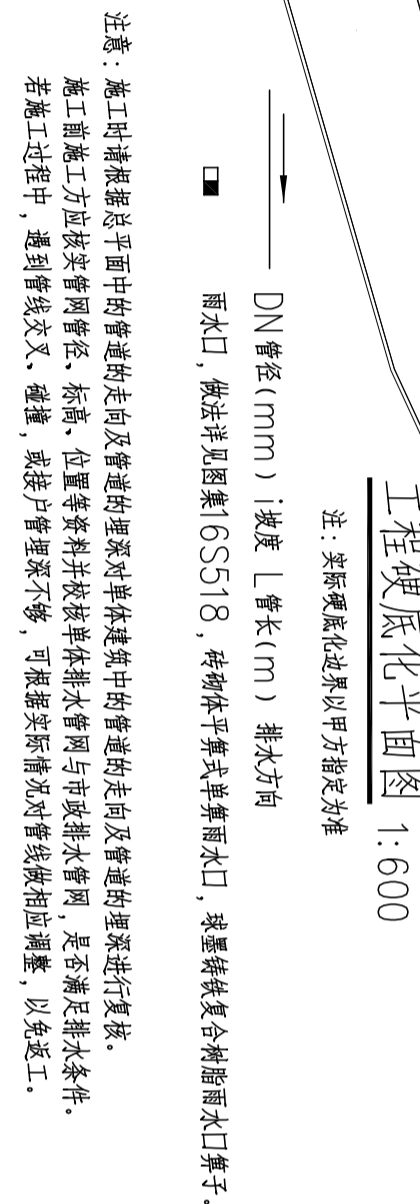 工程硬底化平面图 1:600
注：实际硬底化边界以甲方指定为准
DN 管径(mm) i坡度 L 管长(m) 排水方向
雨水口，做法详见图集16S518，砖砌体平箅式单箅雨水口，球墨铸铁复合树脂雨水口箅子。
注意：施工时请根据总平面中的管道的走向及管道的埋深对单体建筑中的管道的走向及管道的埋深进行复核。
施工前施工方应核实管网管径、标高、位置等资料并校核单体排水管网与市政排水管网，是否满足排水条件。
若施工过程中，遇到管线交叉、碰撞，或接户管埋深不够，可根据实际情况对管线做相应调整，以免返工。